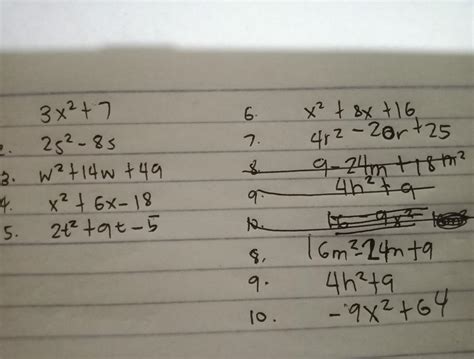 3x² + 7
2. 2s² - 8s
3. w² + 14w + 49
4. x² + 6x - 18
5. 2t² + 9t - 5
6. x² + 8x + 16
7. 4r² - 20r + 25
8. 9 - 24m + 18m²
9. 4h² + 9
10. 16 - 9x²
8. 16m² - 24m + 9
9. 4h² + 9
10. - 9x² + 64